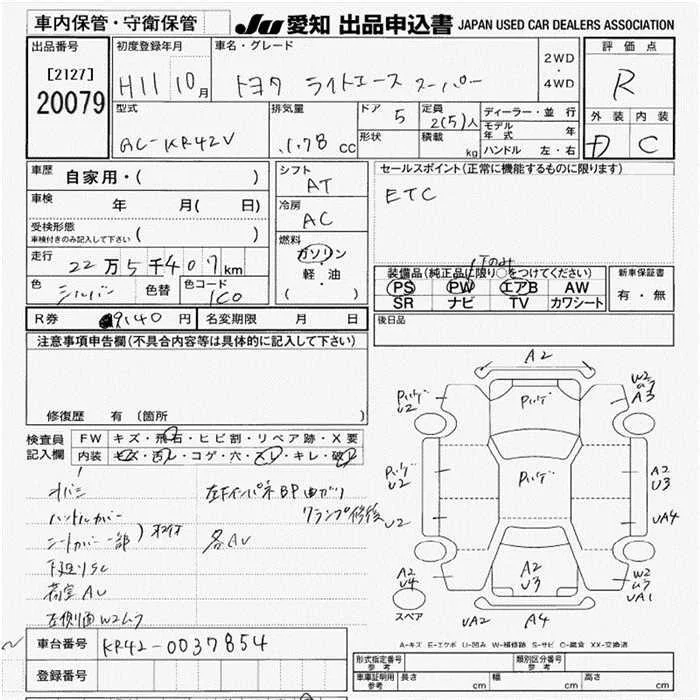 車内保管・守衛保管 JU 愛知 出品申込書 JAPAN USED CAR DEALERS ASSOCIATION
出品番号 初度登録年月 車名・グレード 2WD ・ 4WD 評価点
[2127] H11 10月 トヨタ ライトエース スーパー R
20079 型式 排気量 ドア 5 定員 2(5)人 ディーラー・並行 外装 内装
GC-KR42V 1.78cc 形状 積載 kg モデル年式 年 D C
ハンドル 左・右
車歴 自家用・( ) シフト AT セールスポイント(正常に機能するものに限ります)
車検 年 月( 日) 冷房 AC ETC
受検形態 車検付きのみ記入して下さい ( ) 燃料 ガソリン
走行 22万5千407km 軽・油 装備品(純正品に限り○をつけてください) 新車保証書
色 シルバー 色替 色コード 1C0 ( ) PS PW エアB AW 有・無
SR ナビ TV カワシート
R券 9140円 名変期限 月 日 後日品
注意事項申告欄(不具合内容等は具体的に記入して下さい)
修復歴 有 (箇所 )
検査員記入欄 FW キズ・飛石・ヒビ割・リペア跡・X要
内装 キズ・汚レ・コゲ・穴・スレ・キレ・破レ
ハンドルカバー
シートカバー一部
下廻りSC
荷室AU
各AU
A2
U2
W2
A3
U2
A2
U3
U2
UA4
A2
U4
A2
U3
W2
UA1
スペア
UA2 A4
A-キズ E-エクボ U-凹み W-補修跡 S-サビ C-腐食 XX-交換済
車台番号 KR42-0037854
登録番号
形式指定番号 参考 類別区分番号 参考
車庫証明用 参考 長さ cm 幅 cm 高さ cm